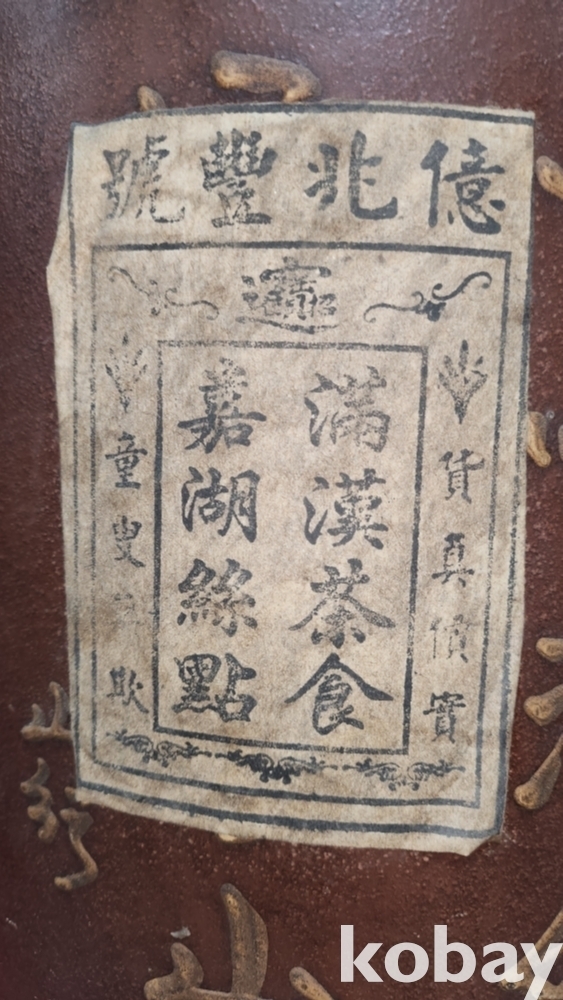 億兆豐號
貨真價實
滿漢茶食
嘉湖絲點
童叟無欺
kobay